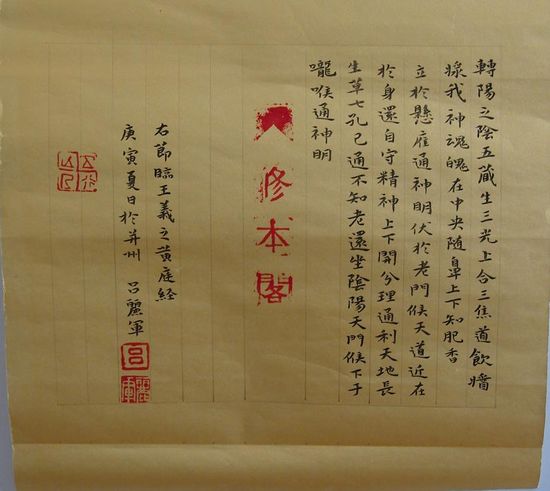 轉陽之陰五藏生三光上合三焦道飲
我神魂魄在中央隨鼻上下知肥香
立於懸雍通神明伏於老門候天道近在
於身還自守精神上下開分理通利天地長
生草七孔已通不知老還坐陰陽天門候下于
嚨喉通神明
修本閣
右節臨王羲之黄庭经
庚寅夏日於并州 呂麗軍
呂
麗軍